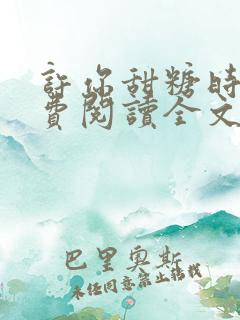 許你甜糖時
費閱讀全文
巴里奧斯
未經同意禁止轉載